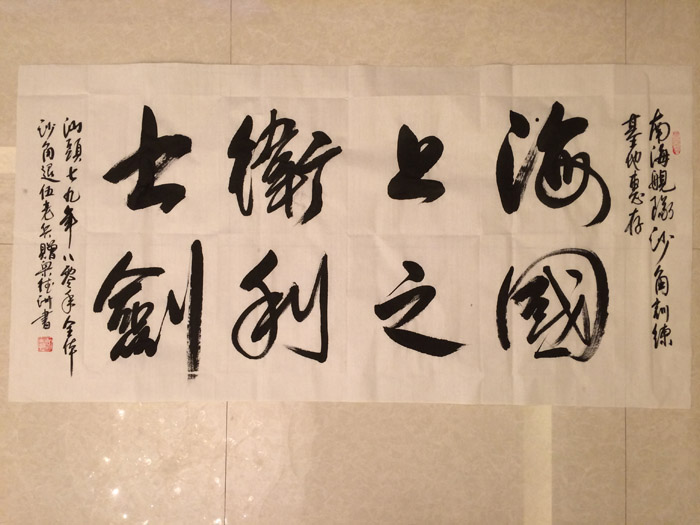 南海舰隊沙角訓練
基地惠存
海上衛士
國之利劍
汕頭七九年八零年全体
沙角退伍老兵贈梁桂洲書